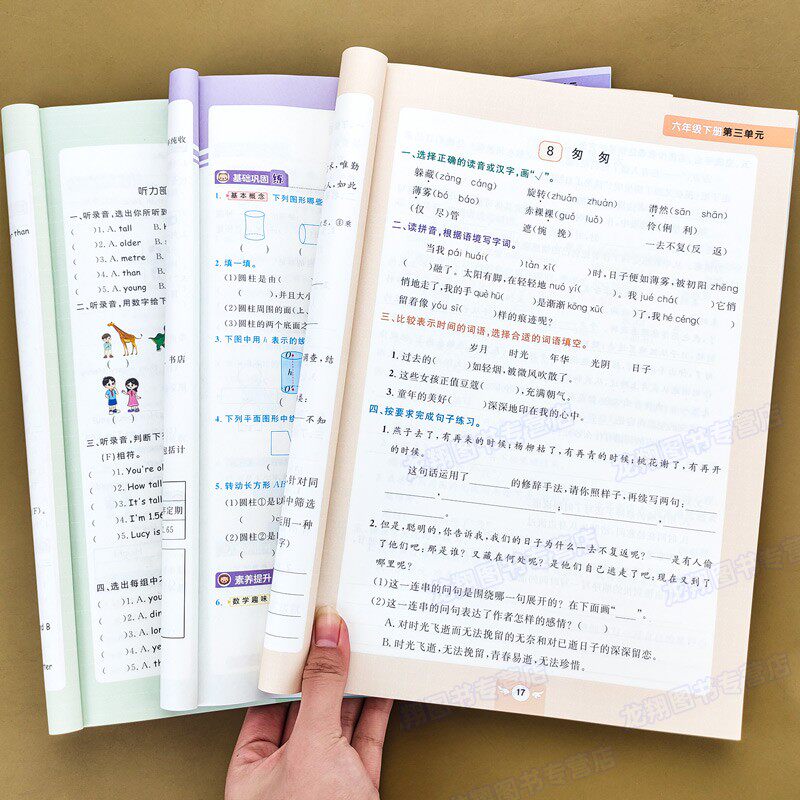 六年级下册 第三单元
8 匆匆
一、选择正确的读音或汉字,画“√”。
躲藏(zàng cáng) 旋转(zhuǎn zhuàn) 潸然(sān shān)
薄雾(bó báo) 赤裸裸(guǒ luǒ) 伶(俐 利)
(仅 尽)管 遮(惋 挽) 一去不复(反 返)
二、读拼音,根据语境填写字词。
当我pái huái( )tàn xī( )时,日子便如薄雾,被初阳zhēng
( )融了。太阳有脚,在轻轻地nuó yí( )。我jué chá( )它悄
悄地走了,我的手què hū( )是渐渐kōng xū( )了,我hé céng( )
留着像yóu sī( )样的痕迹呢?
三、比较表示时间的词语,选择合适的词语填空。
岁月 时光 年华 光阴 日子
1. 过去的( )如轻烟,被微风吹散了。
2. 这些女孩正值豆蔻( ),充满朝气。
3. 童年的美好( )深深地印在我的心中。
四、按要求完成句子练习。
1. 燕子去了,有再来的时候;杨柳枯了,有再青的时候;桃花谢了,有再开
的时候。
这句话运用了____的修辞手法,请你照样子,再续写两句:____
____,____;____,____。
2. 但是,聪明的,你告诉我,我们的日子为什么一去不复返呢?——是有人偷
了他们吧:那是谁?又藏在何处呢?是他们自己逃走了吧:现在又到了
哪里呢?
(1)这一连串的问句是围绕哪一句展开的?在下面画“____”。
(2)这一连串的问句表达了作者怎样的感情?( )
A. 对时光飞逝而无法挽留的无奈和对已逝日子的深深留恋。
B. 时光飞逝,无法挽留,青春易逝,无法珍惜。
17
基础巩固 练
1. 基本概念 下列图形哪些
2. 填一填。
(1)圆柱是由(
( ),并且大小
(2)圆柱周围的面(上、
(3)圆柱的两个底面之
3. 下图中用 h 表示的线
4. 下列平面图形中绕
5. 转动长方形 AB
(1)圆柱①是以
( )
(2)圆柱②是
( )
素养提升
6. 数学趣味
听力部
一、听录音,选出你所听到
( )1. A. tall B.
( )2. A. older B.
( )3. A. metre B.
( )4. A. than B.
( )5. A. young B.
二、听录音,用数字给下
三、听录音,判断下
(F)相符。
( )1. You're ol
( )2. How tall
( )3. It's tall
( )4. I'm 1.6
( )5. Lucy is
四、选出每组中不
( )1. A. you
( )2. A.
( )3. A. lon
( )4. A. ye
( )5. A. th
龙翔图书专营店